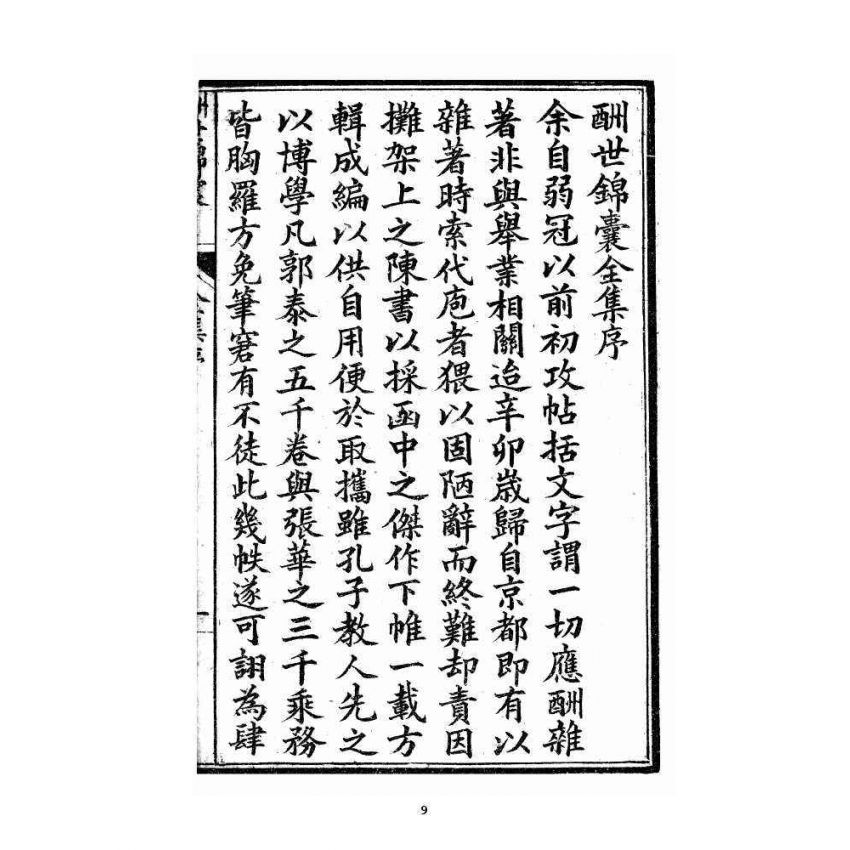 酬世錦囊全集序
余自弱冠以前初攻帖括文字謂一切應酬雜
著非與舉業相關迨辛卯歲歸自京都即有以
雜著時索代庖者猥以固陋辭而終難却責因
攤架上之陳書以採函中之傑作下帷一載方
輯成編以供自用便於取攜雖孔子教人先之
以博學凡郭泰之五千卷與張華之三千乘務
皆胸羅方免筆窘有不徒此幾帙遂可詡為肆
9